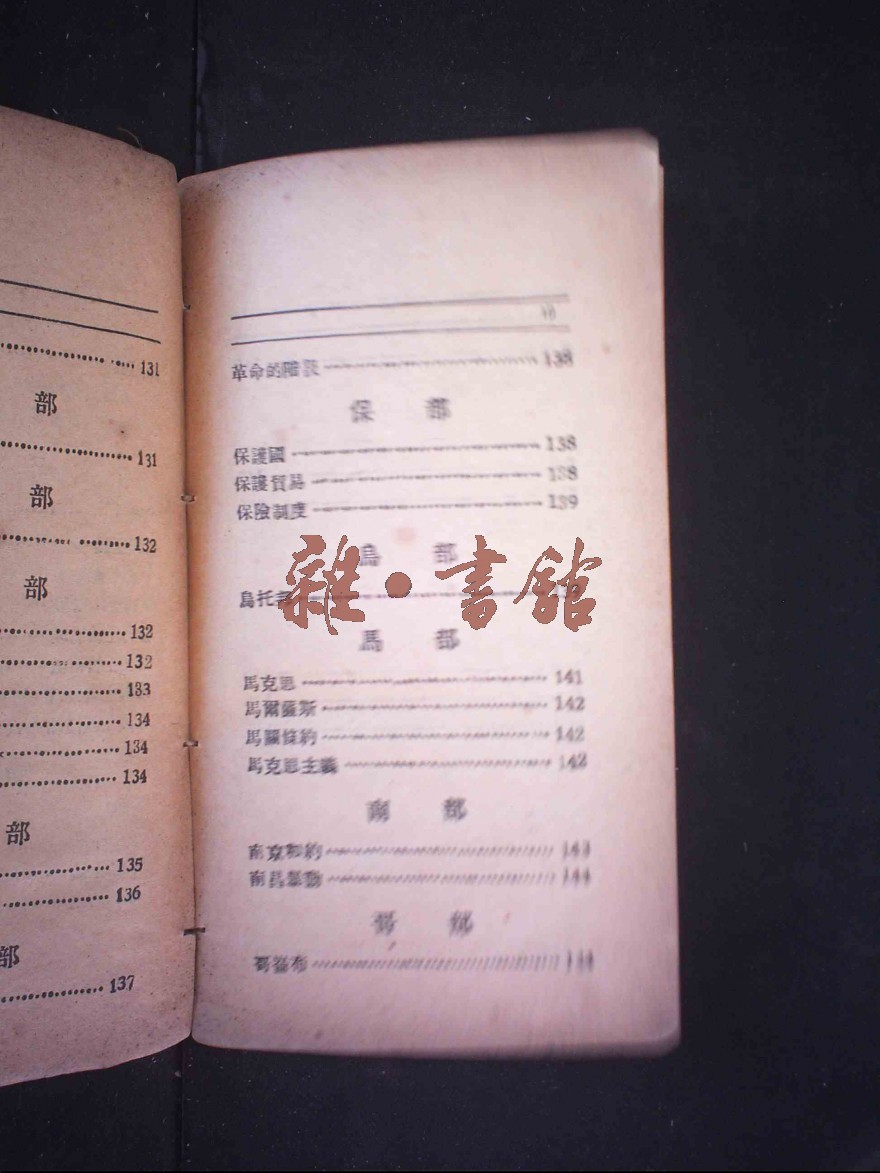 131
部
131
部
132
部
132
132
133
134
134
134
部
135
136
部
137
革命的階段 138
保 部
保護國 138
保護貿易 138
保險制度 139
烏 部
烏托邦 139
雜·書館
馬 部
馬克思 141
馬爾薩斯 142
馬關條約 142
馬克思主義 142
南 部
南京條約 143
南昌 144
部
144